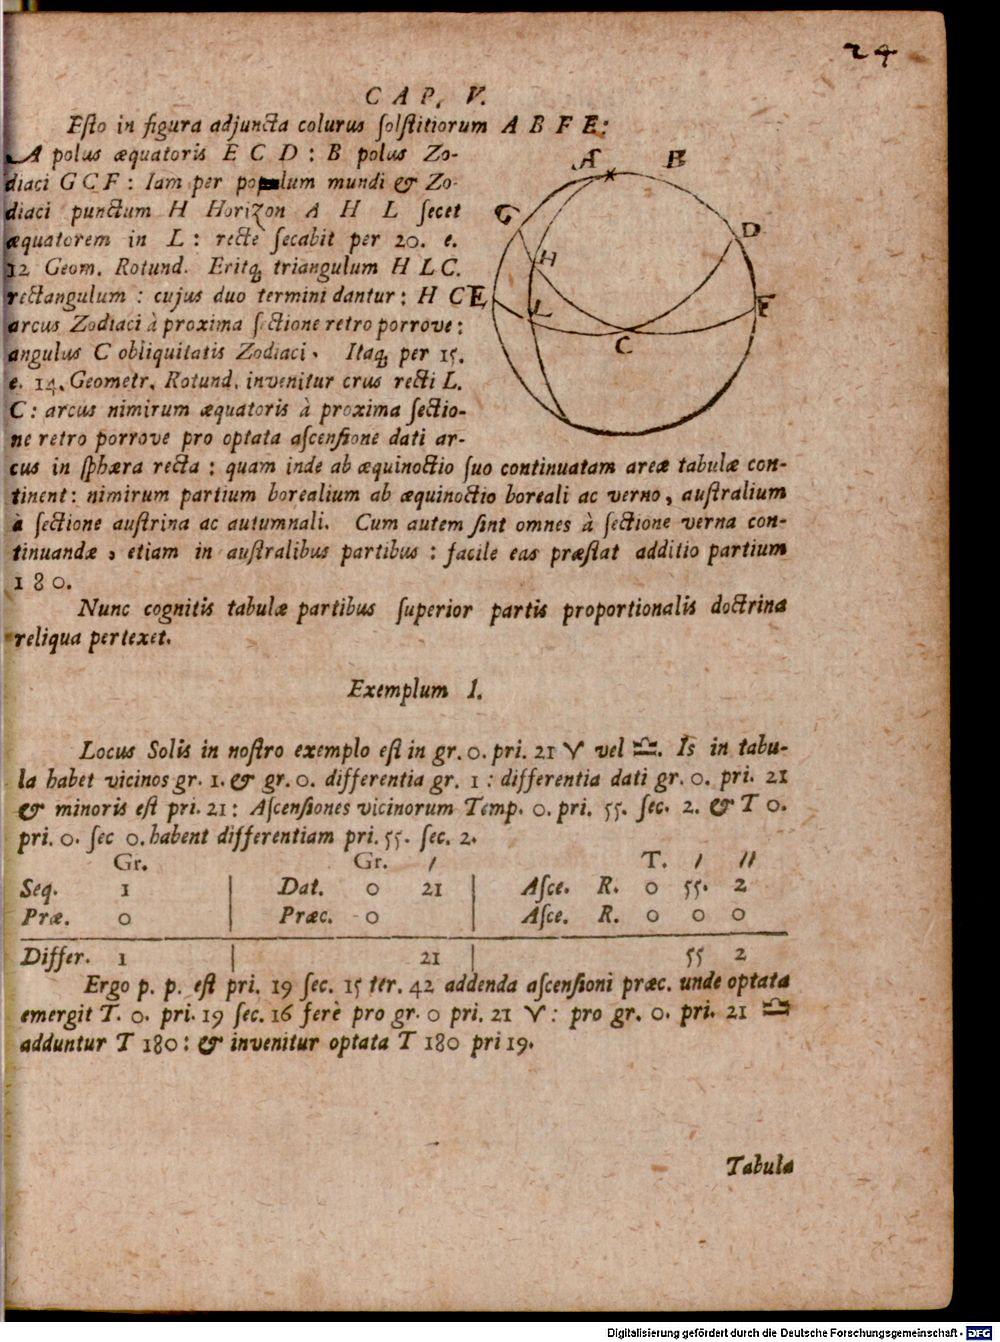 24
CAP. V.
Eſto in figura adjuncta colurus ſolſtitiorum A B F E:
A polus æquatoris E C D : B polus Zo-
diaci G C F : Iam per polum mundi & Zo-
diaci punctum H Horizon A H L ſecet
æquatorem in L : rectè ſecabit per 20. e.
12 Geom. Rotund. Eritq; triangulum H L C.
rectangulum : cujus duo termini dantur : H C
arcus Zodiaci à proxima ſectione retro porrove :
angulus C obliquitatis Zodiaci. Itaq; per 15.
e. 14. Geometr. Rotund. invenitur crus recti L.
C : arcus nimirum æquatoris à proxima ſectio-
ne retro porrove pro optata aſcenſione dati ar-
cus in ſphæra recta : quam inde ab æquinoctio ſuo continuatam areæ tabulæ con-
tinent : nimirum partium borealium ab æquinoctio boreali ac verno, auſtralium
à ſectione auſtrina ac autumnali. Cum autem ſint omnes à ſectione verna con-
tinuandæ, etiam in auſtralibus partibus : facile eas præſtat additio partium
180.
A B G D H E L F C
Nunc cognitis tabulæ partibus ſuperior partis proportionalis doctrina
reliqua pertexet.
Exemplum 1.
Locus Solis in noſtro exemplo eſt in gr. 0. pri. 21 ♈ vel ♎. Is in tabu-
la habet vicinos gr. 1. & gr. 0. differentia gr. 1 : differentia dati gr. 0. pri. 21
& minoris eſt pri. 21 : Aſcenſiones vicinorum Temp. 0. pri. 55. ſec. 2. & T 0.
pri. 0. ſec 0. habent differentiam pri. 55. ſec. 2.
Gr. Gr. / T. / //
Seq. 1 | Dat. 0 21 | Aſce. R. 0 55. 2
Præ. 0 | Præc. 0 | Aſce. R. 0 0 0
Differ. 1 | 21 | 55 2
Ergo p. p. eſt pri. 19 ſec. 15 ter. 42 addenda aſcenſioni præc. unde optata
emergit T. 0. pri. 19 ſec. 16 ferè pro gr. 0 pri. 21 ♈ : pro gr. 0. pri. 21 ♎
adduntur T 180 : & invenitur optata T 180 pri 19.
Tabula
Digitalisierung gefördert durch die Deutsche Forschungsgemeinschaft - DFG